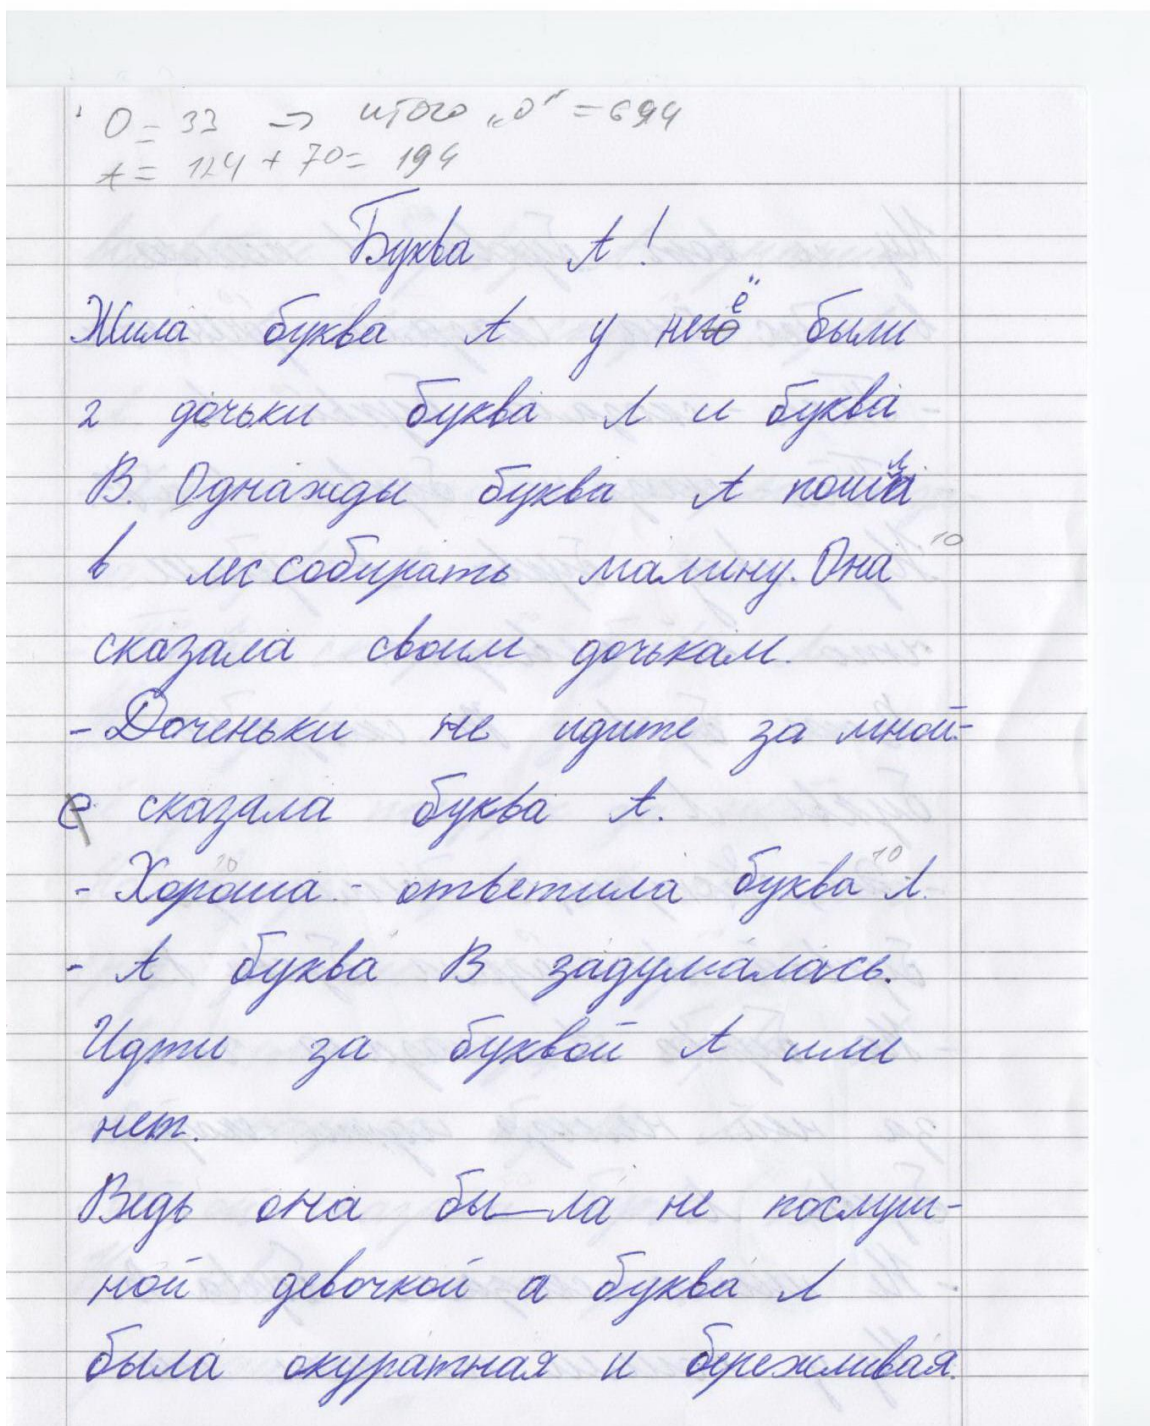 О = 33 => итого „о" = 694
А = 124 + 70 = 194
Буква А!
Жила буква А у неё были
2 дочьки буква Л и буква
В. Однажды буква А пошла
в лес собирать малину. Она 10
сказала своим дочькам.
- Доченьки не идите за мной-
сказала буква А.
- Хороша - ответила буква Л.
- А буква В задумалась.
Идти за буквой А или
нет.
Ведь она бы—ла не послуш-
ной девочкой а буква Л
была окуратная и бережливая.